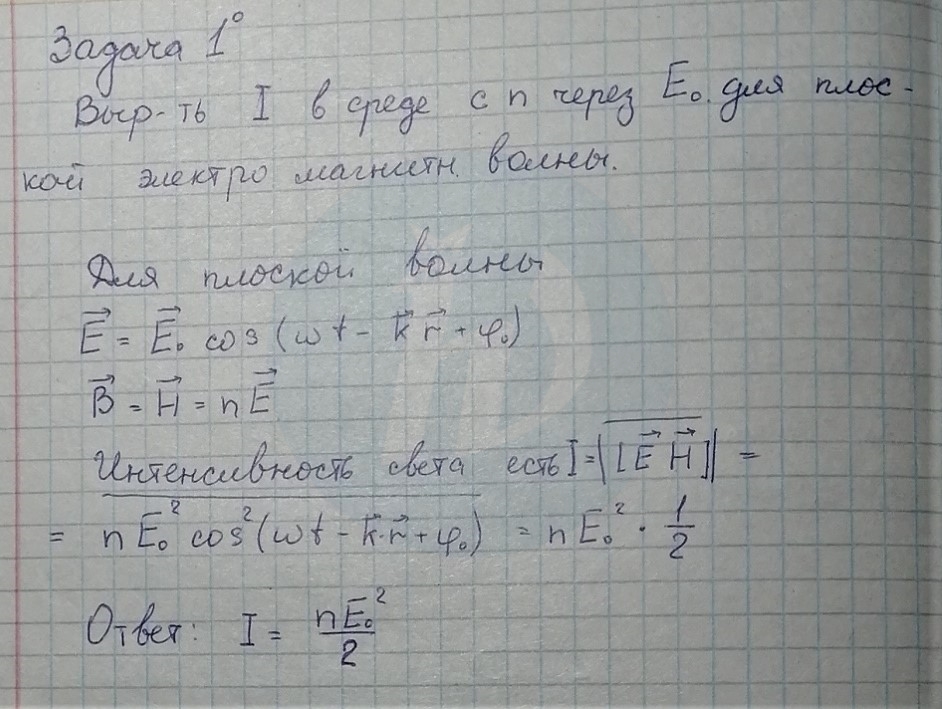 Задача 1°
Выр-ть I в среде с n через E₀ для плос-
кой электро магнитн. волны.
Для плоской волны
E⃗ = E⃗₀ cos (ωt - k⃗ r⃗ + φ₀)
B⃗ = H⃗ = nE⃗
Интенсивность света есть I = |\overline{[E⃗ H⃗]}| =
= nE₀² cos² (ωt - k⃗·r⃗ + φ₀) = nE₀² · 1/2
Ответ: I = nE₀²/2